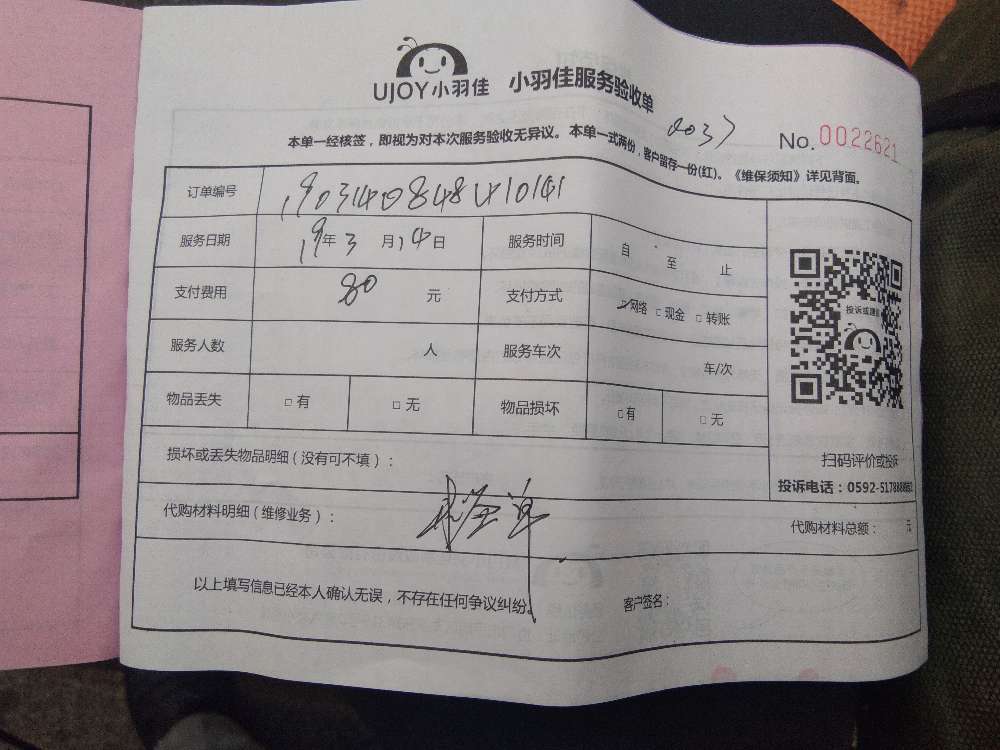 UJOY小羽佳 小羽佳服务验收单
0037
No.0022621
本单一经核签，即视为对本次服务验收无异议。本单一式两份，客户留存一份(红)。《维保须知》详见背面。
订单编号
服务日期 19年3月14日 服务时间 自 至 止
支付费用 80 元 支付方式 ☑网络 □现金 □转账
服务人数 人 服务车次 车/次
物品丢失 □有 □无 物品损坏 □有 □无
投诉或建议
扫码评价或投诉
损坏或丢失物品明细（没有可不填）：
投诉电话：0592-5178888
代购材料明细（维修业务）： 代购材料总额： 元
以上填写信息已经本人确认无误，不存在任何争议纠纷。 客户签名：